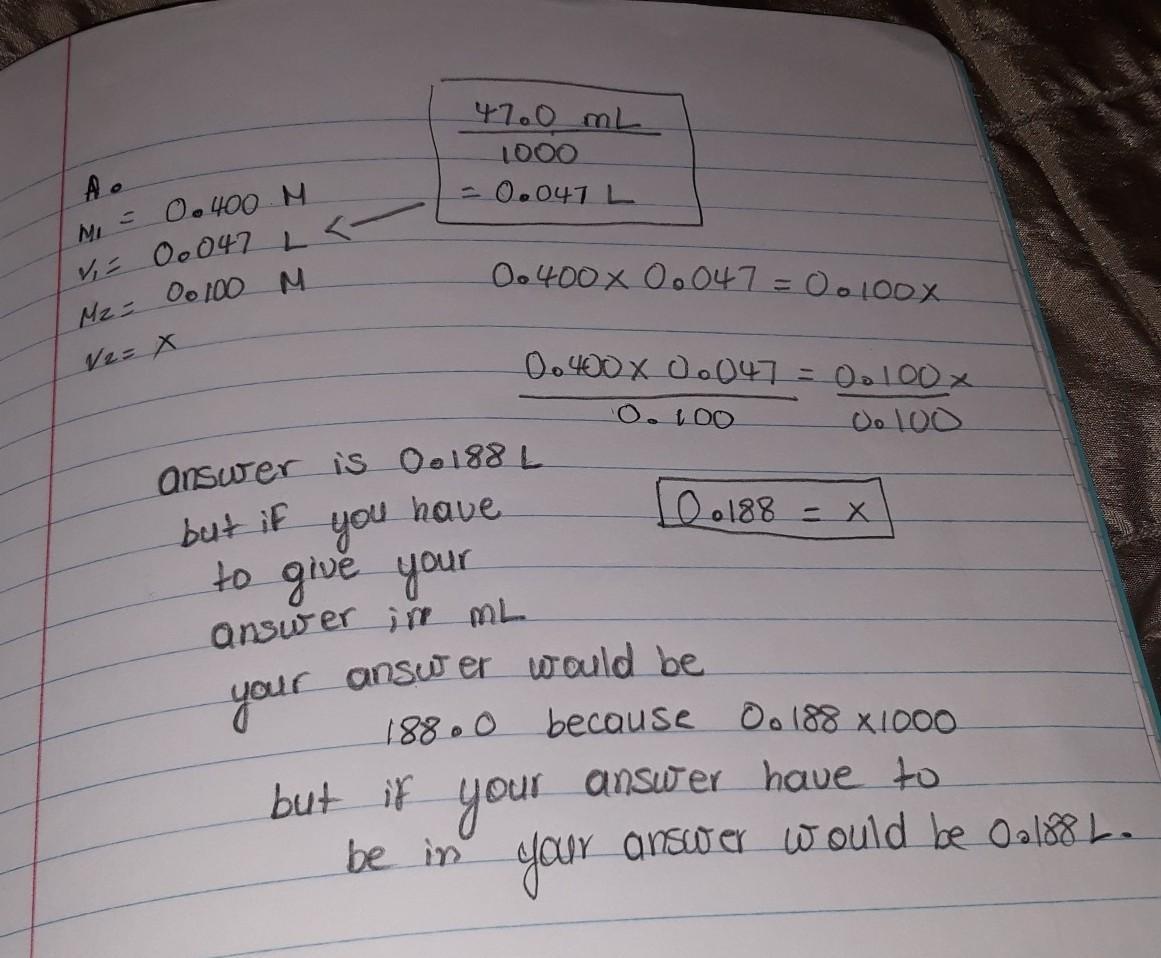 47.0 mL
1000
= 0.047 L
A.
M1 = 0.400 M
V1 = 0.047 L
M2 = 0.100 M
V2 = x
0.400 x 0.047 = 0.100x
0.400 x 0.047 = 0.100x
0.100 0.100
0.188 = x
answer is 0.188 L
but if you have
to give your
answer in mL
your answer would be
188.0 because 0.188 x1000
but if your answer have to
be in your answer would be 0.188 L.